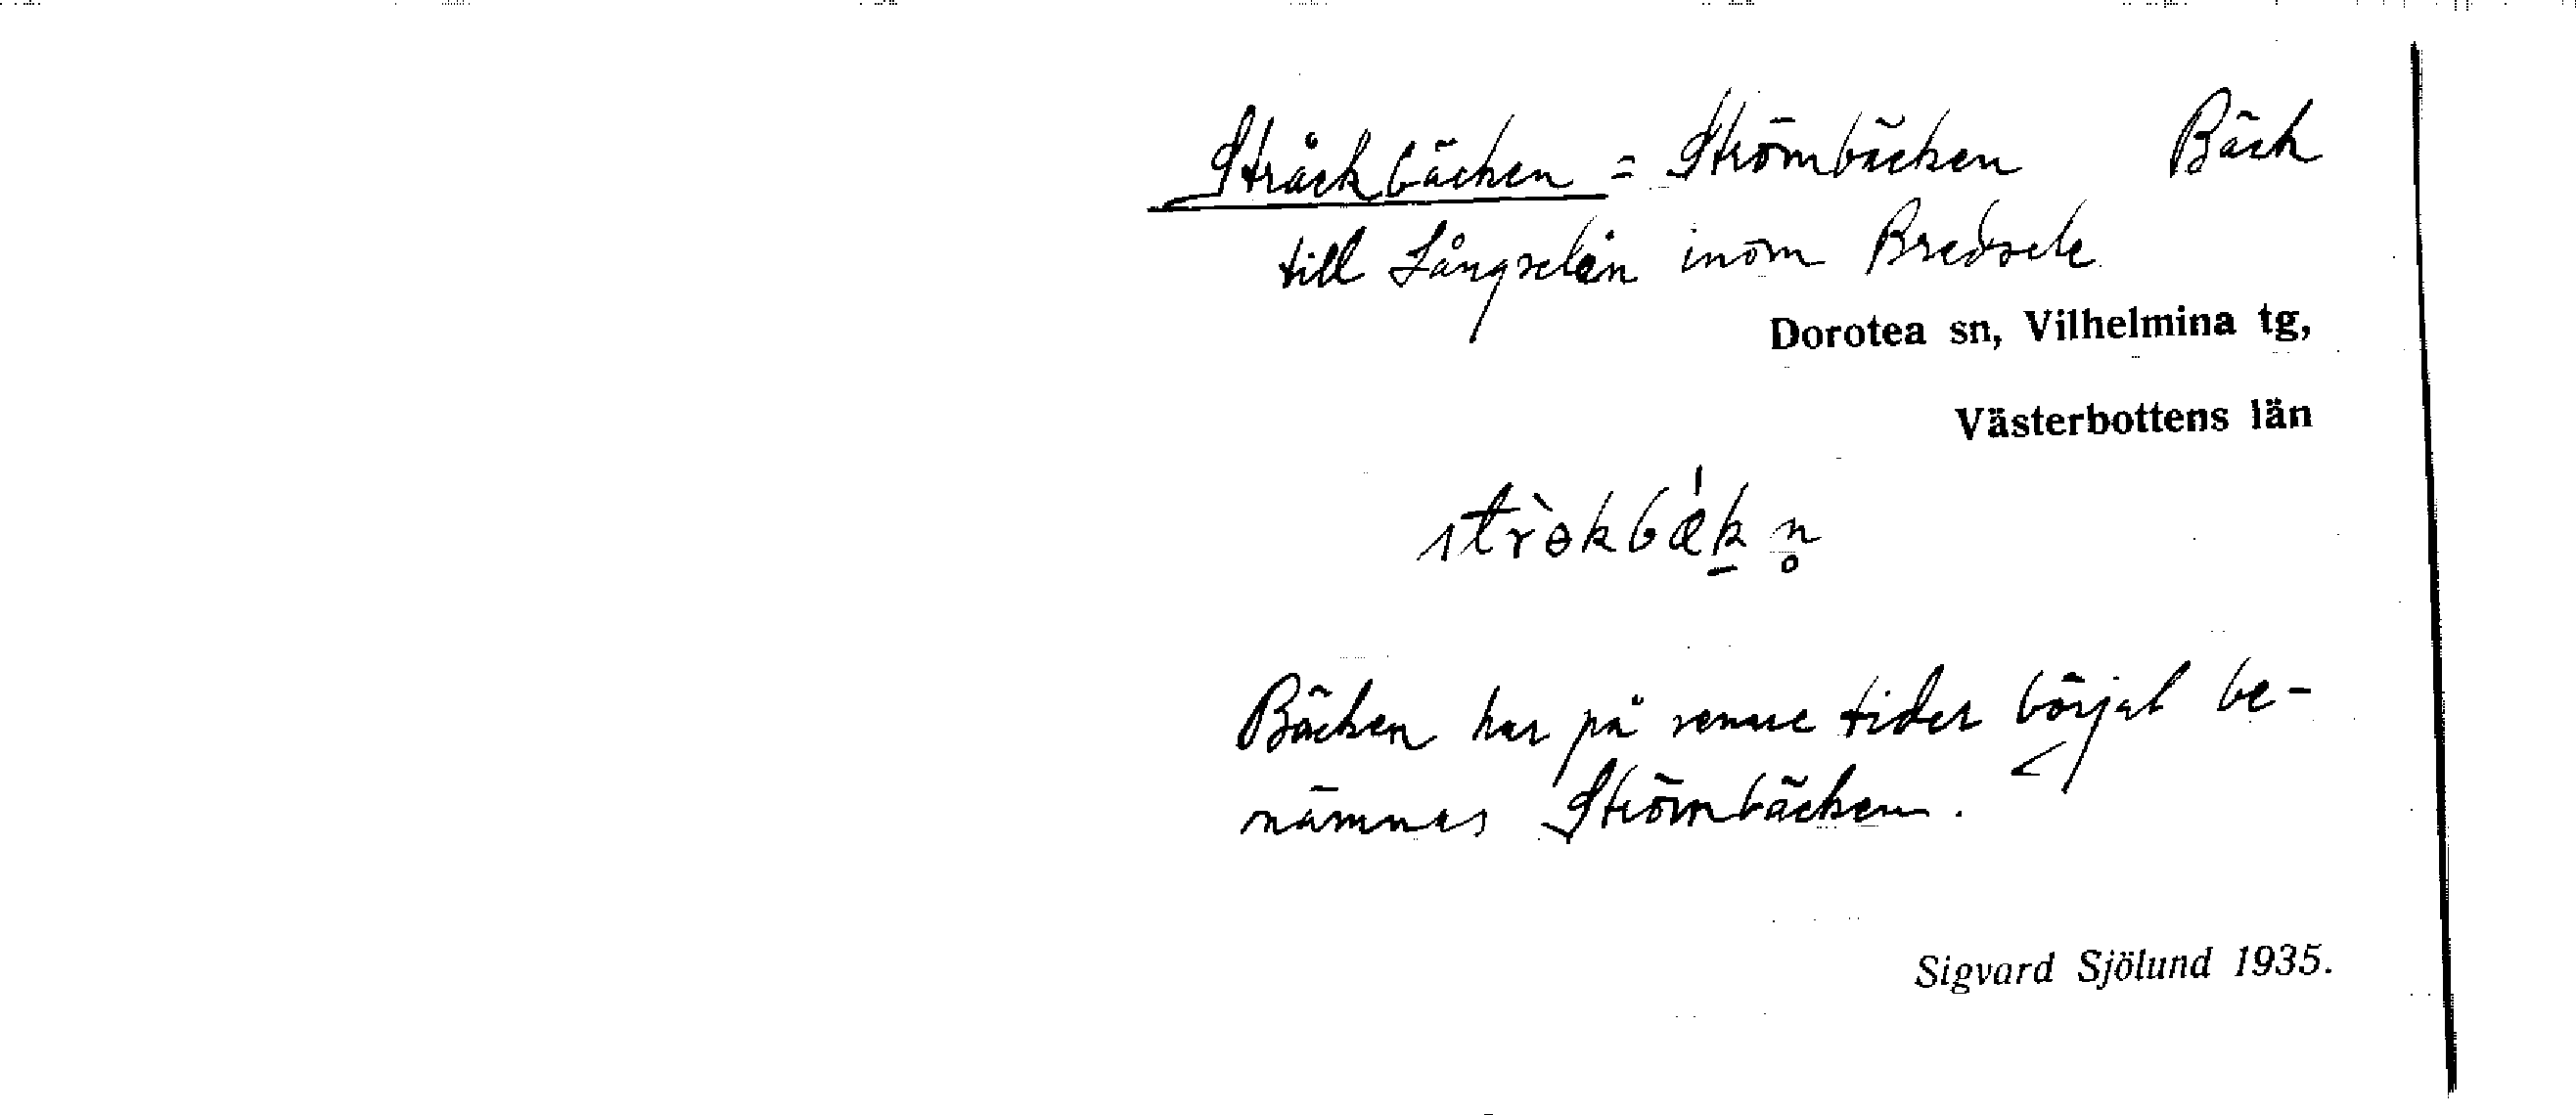 Stråckbäcken = Strömbäcken Bäck
till Långselån inom Bredsele
Dorotea sn, Vilhelmina tg,
Västerbottens län
strò̀kbǽk̠n̥
Bäcken har på senare tider börjat be-
nämnas Strömbäcken.
Sigvard Sjölund 1935.